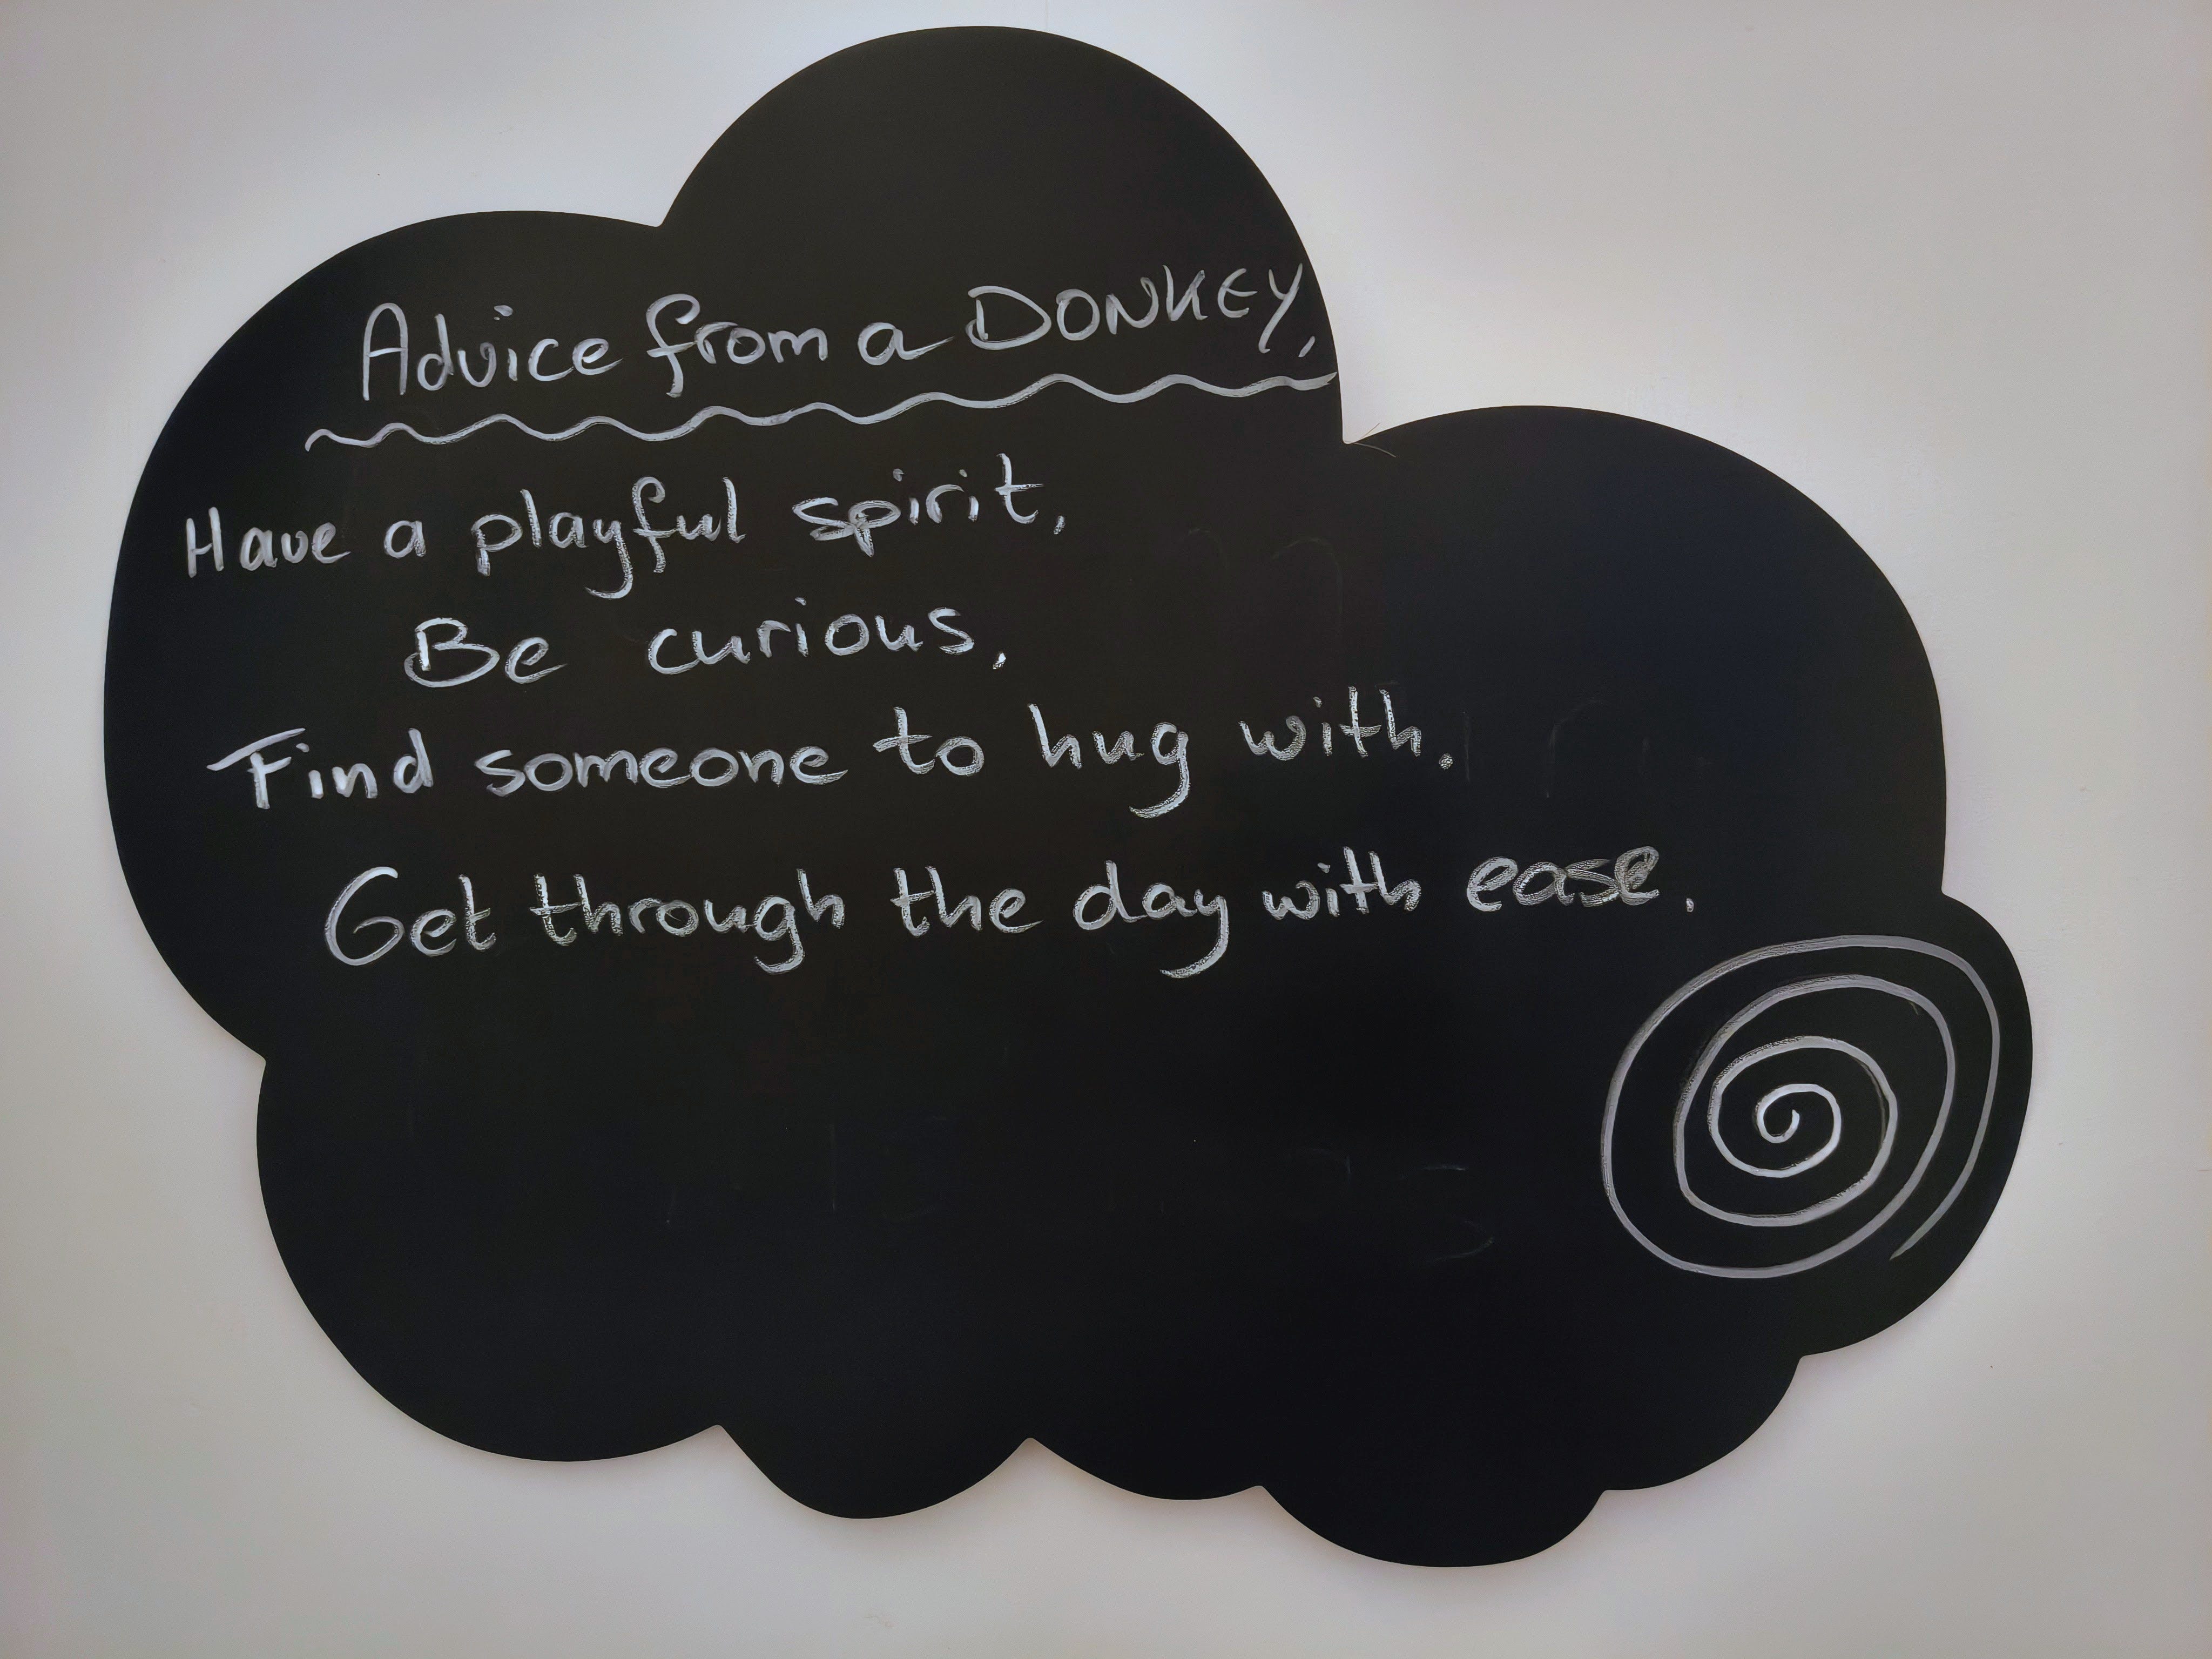 Advice from a DONKEY,
Have a playful spirit,
Be curious,
Find someone to hug with.
Get through the day with ease.